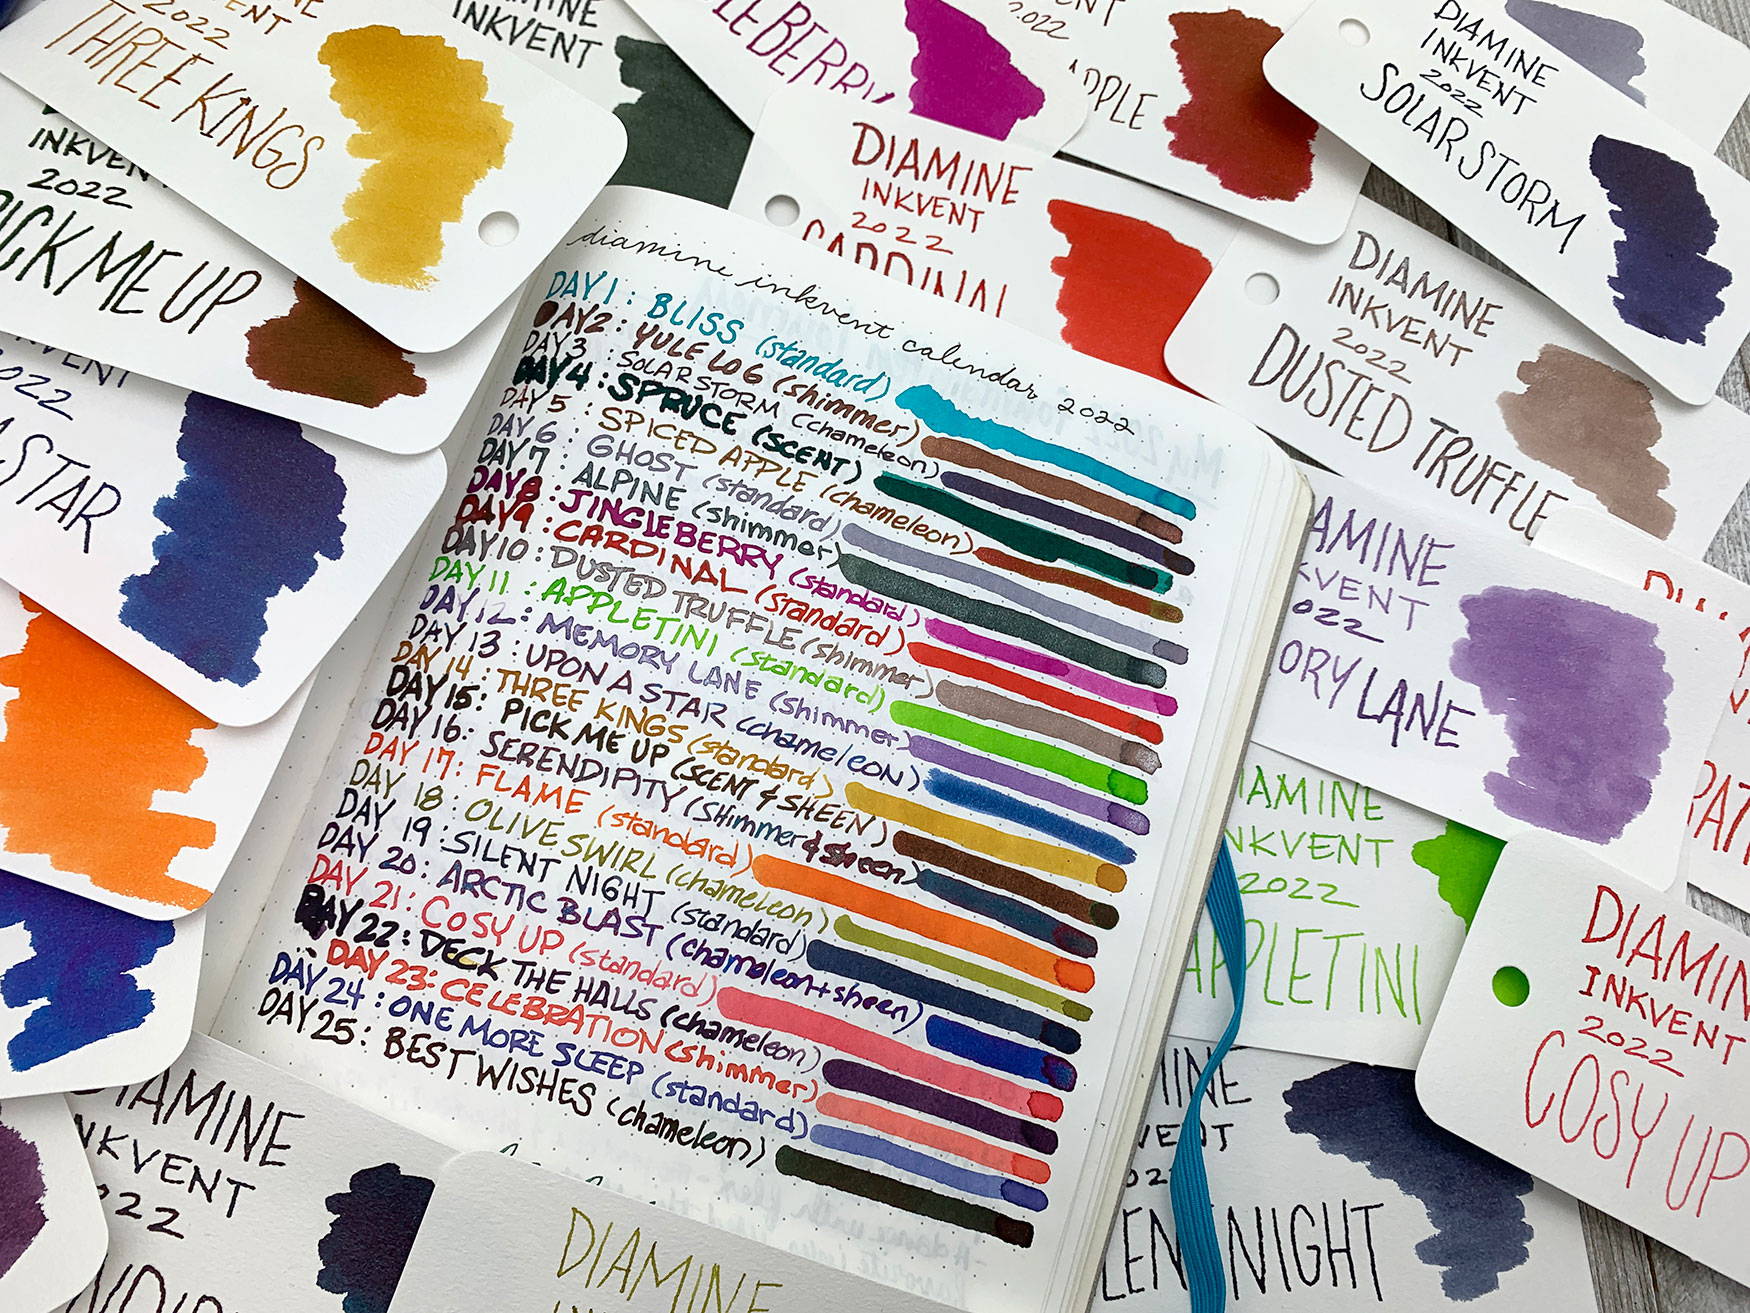 2022
THREE KINGS
INKVENT
BERRY
2022
PPLE
DIAMINE
INKVENT
2022
SOLAR STORM
2022
PICK ME UP
DIAMINE
INKVENT
2022
CARDINAL
DIAMINE
INKVENT
2022
DUSTED TRUFFLE
2022
STAR
diamine inkvent calendar 2022
DAY 1: BLISS (standard)
DAY 2: YULE LOG (shimmer)
DAY 3: SOLAR STORM (chameleon)
DAY 4: SPRUCE (SCENT)
DAY 5: SPICED APPLE (chameleon)
DAY 6: GHOST (standard)
DAY 7: ALPINE (shimmer)
DAY 8: JINGLEBERRY (standard)
DAY 9: CARDINAL (standard)
DAY 10: DUSTED TRUFFLE (shimmer)
DAY 11: APPLETINI (standard)
DAY 12: MEMORY LANE (shimmer)
DAY 13: UPON A STAR (chameleon)
DAY 14: THREE KINGS (standard)
DAY 15: PICK ME UP (SCENT & SHEEN)
DAY 16: SERENDIPITY (shimmer & sheen)
DAY 17: FLAME (standard)
DAY 18: OLIVE SWIRL (chameleon)
DAY 19: SILENT NIGHT (standard)
DAY 20: ARCTIC BLAST (chameleon + sheen)
DAY 21: COSY UP (standard)
DAY 22: DECK THE HALLS (chameleon)
DAY 23: CELEBRATION (shimmer)
DAY 24: ONE MORE SLEEP (standard)
DAY 25: BEST WISHES (chameleon)
AMINE
KVENT
2022
ORY LANE
IAMINE
NKVENT
2022
APPLETINI
DIAMIN
INKVENT
2022
COSY UP
2022
LENT NIGHT
DIAMINE
INKVENT
2022
DIAMINE